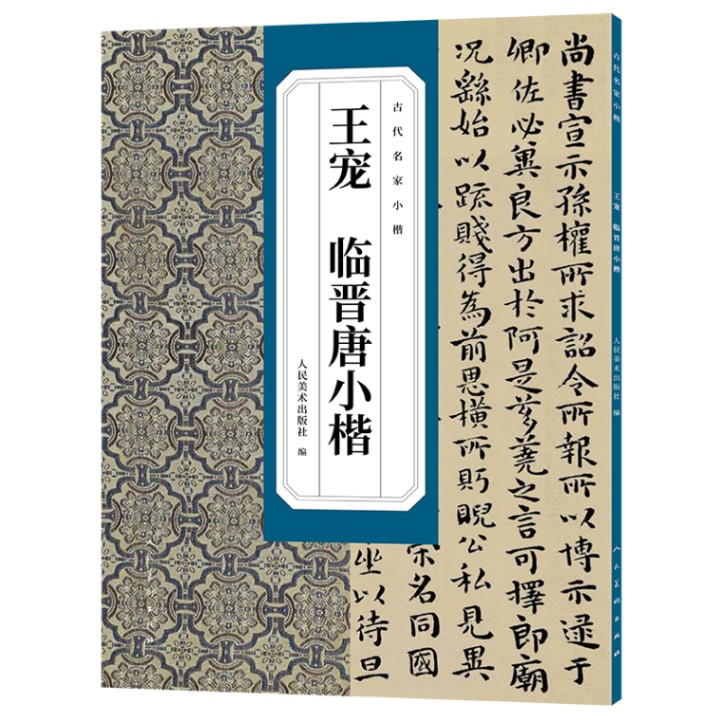 古代名家小楷
王宠 临晋唐小楷
人民美术出版社 编
尚書宣示孫權所求詔令所報所以博示逮于
卿佐必冀良方出於阿是芻蕘之言可擇郎廟
况繇始以疏賤得為前恩橫所盻睨公私見異
宗名同國
坐以待旦
古代名家小楷
王宠 临晋唐小楷
人民美术出版社 编
人民美術出版社